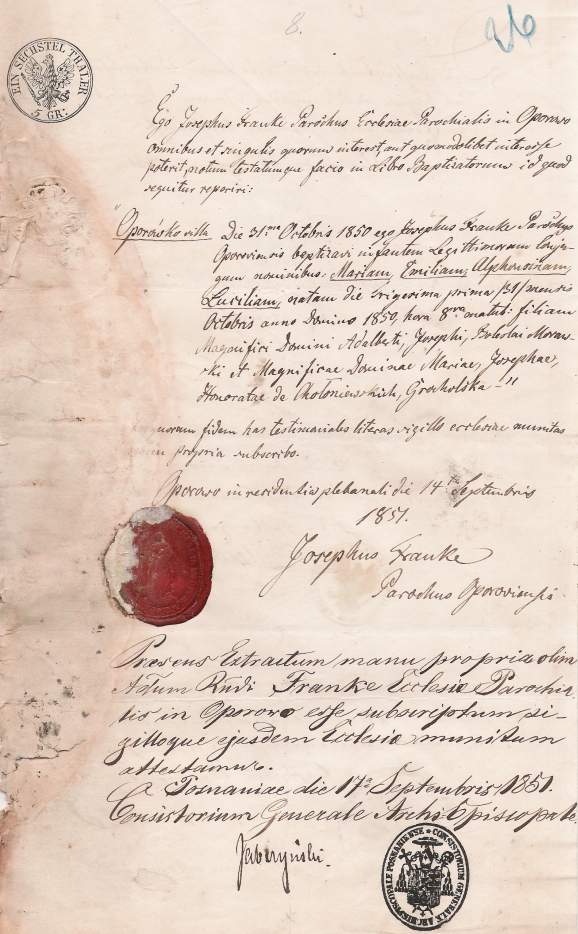 8.
26
EIN SECHSTEL THALER
5 GR:
Ego Josephus Franke Parochus Ecclesiae Parochialis in Oporowo
omnibus et singulis quorum interest, aut quomodolibet interesse
poterit, notum testatumque facio in Libro Baptisatorum id quod
sequitur reperiri:
"Oporówko villa Die 31ma Octobris 1850 ego Josephus Franke Parochus
Oporoviensis baptizavi infantem Legittimorum Conju-
gum nominibus: Mariam, Emiliam, Alphonsinam,
Luciliam, natam die trigesima prima /31/ mensis
Octobris anno Domino 1850, hora 8va matuti: filiam
Magnifici Domini Adalberti, Josephi, Boleslai Moraw-
ski et Magnificae Dominae Mariae, Josephae,
Honoratae de Chołoniewskich, Grocholska -"
quorum fidem has testimoniales literas sigillo ecclesiae munitas
propria subscribo.
Oporowo in residentia plebanali die 14ta Septembris
1851.
Josephus Franke
Parochus Oporoviensis
Praesens Extractum manu propria olim
Franke Ecclesiae Parochia-
lis in Oporowo esse subscriptum si-
gilloque ejusdem Ecclesia munitum
attestamur.
Posnaniae die 17a Septembris 1851.
Consistorium Generale Archi Episcopale
CONSISTORIUM GENERALE ARCHIEPISCOPALE POSNANIENSE